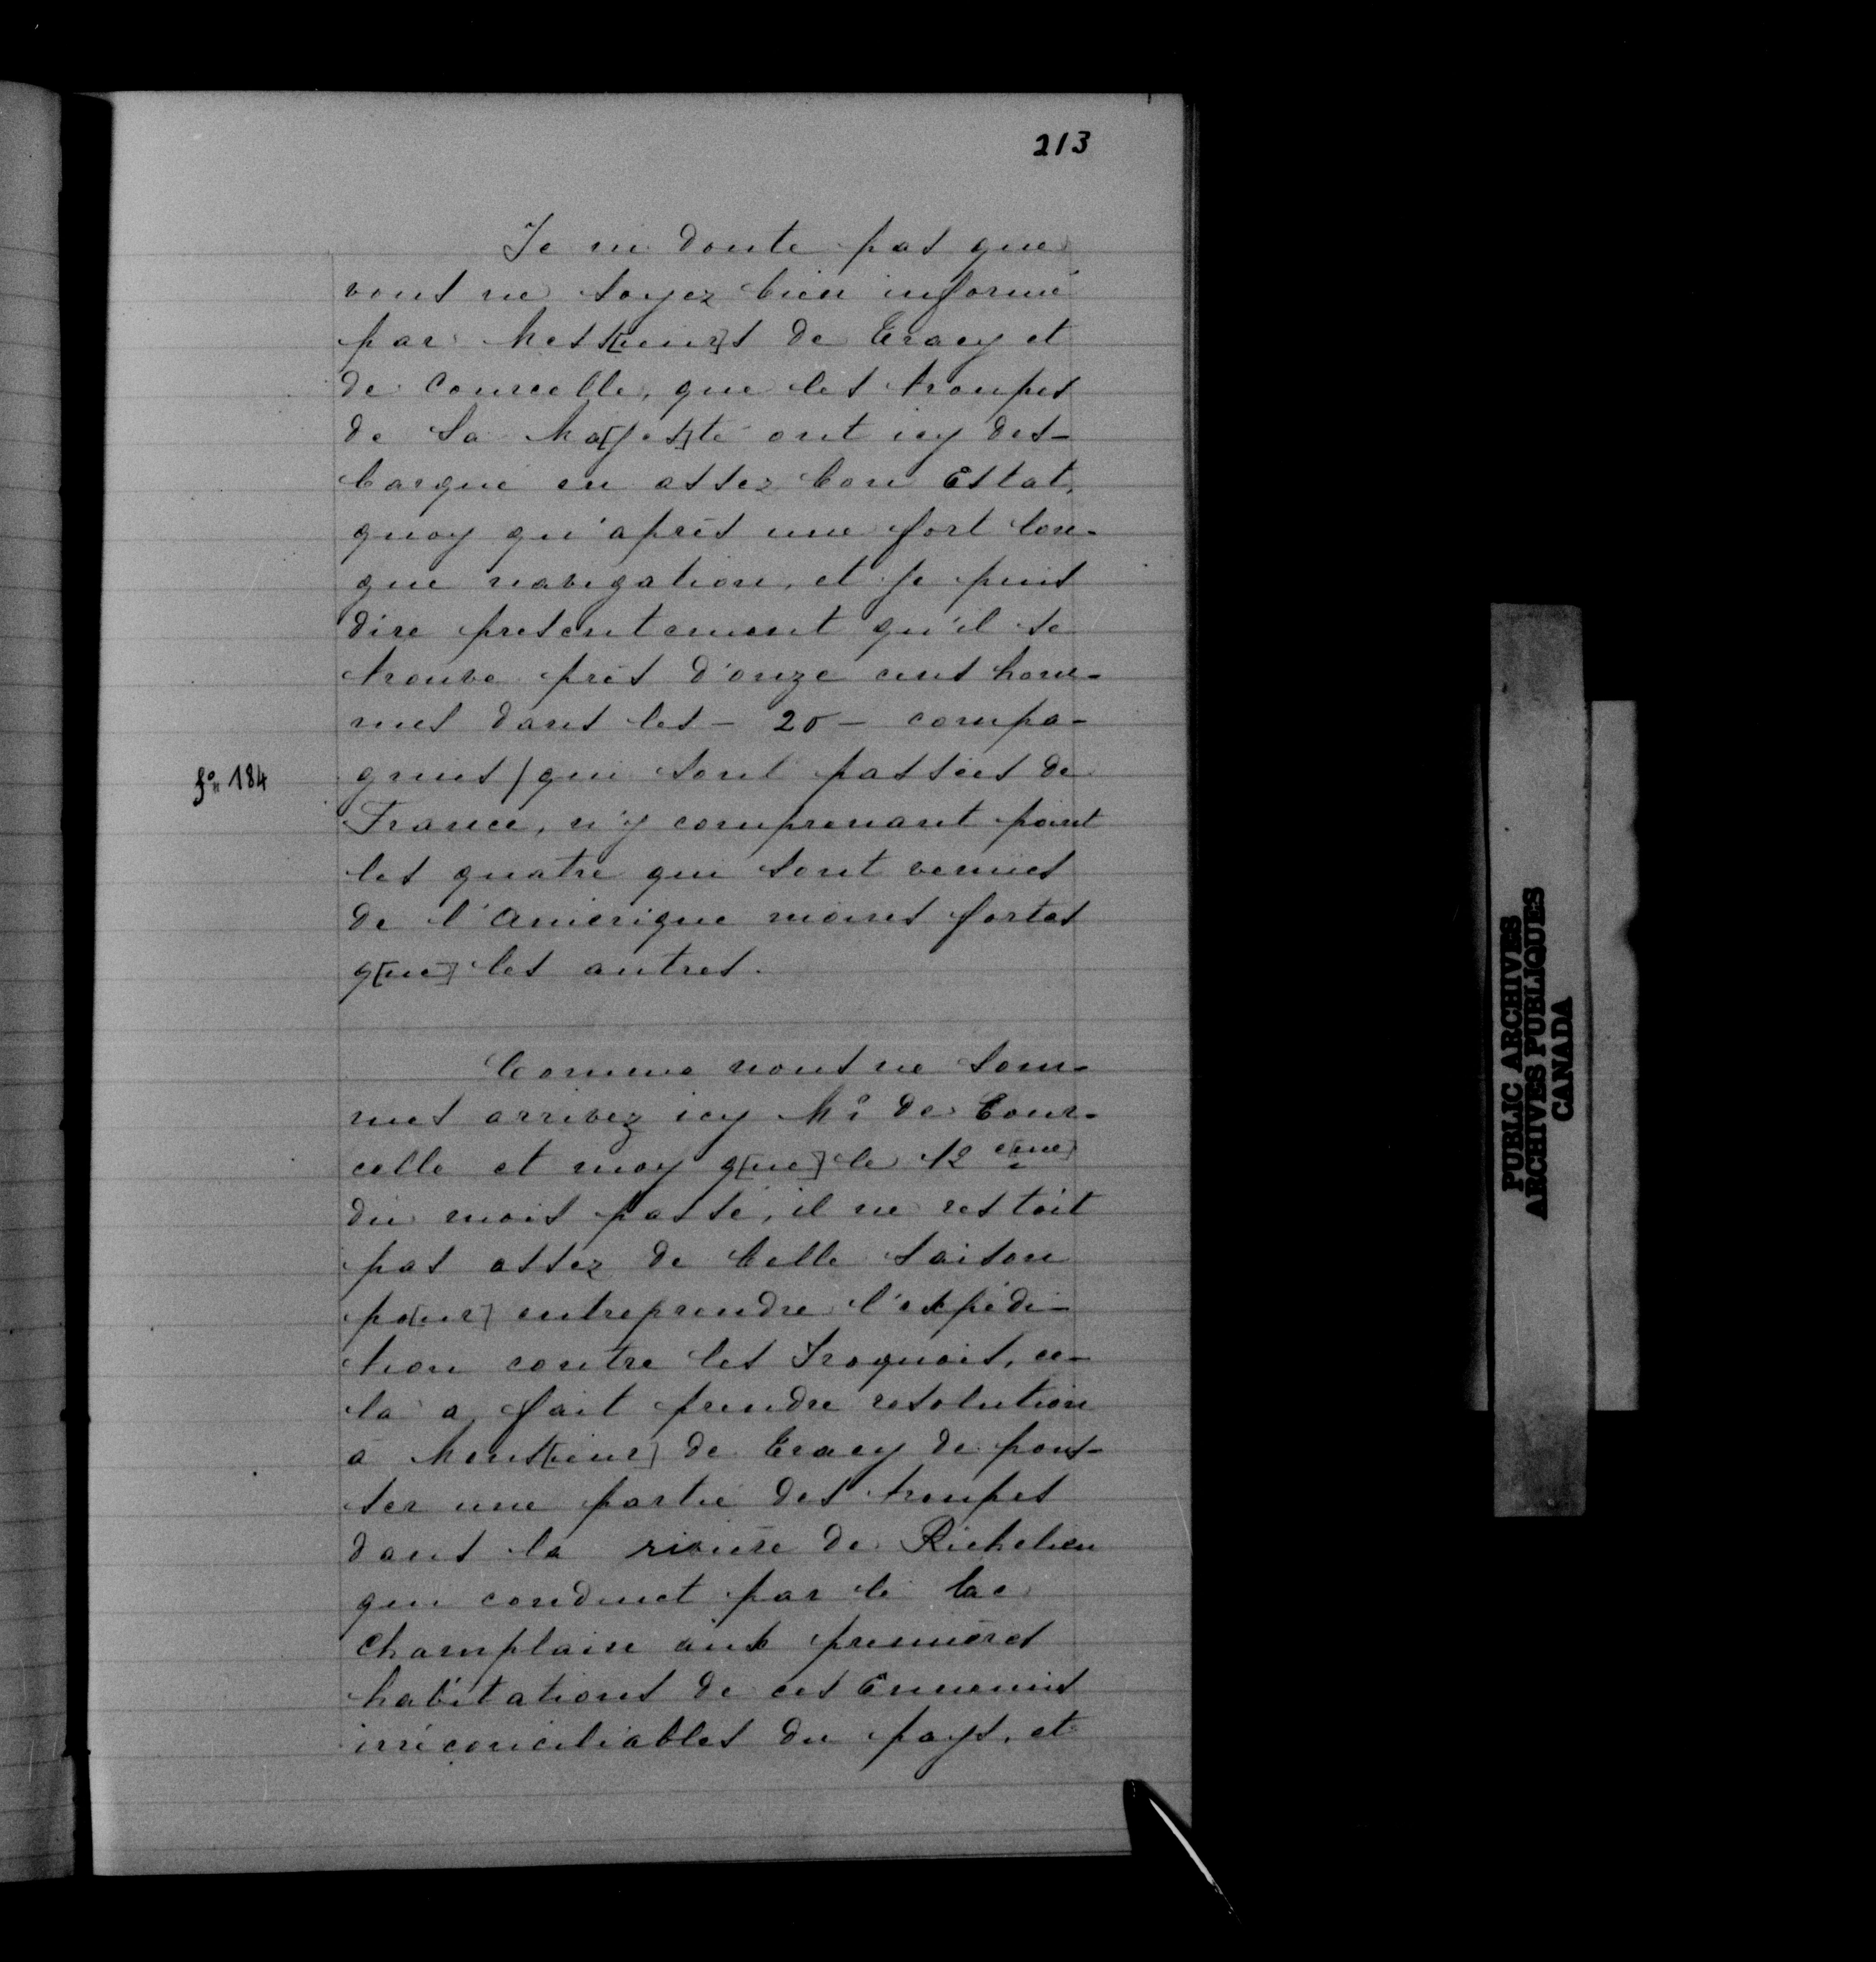 213
Je ne doute pas que
vous ne soyez bien informé
par Mess[ieur]s de Tracy et
de Courcelle, que les troupes
de Sa Ma[jes]té ont icy des-
barqué en assez bon Estat,
quoy qu'aprés une fort lon-
gue navigation, et je puis
dire presentement qu'il se
trouve prés d'onze cens hom-
mes dans les - 20 - compa-
fo 184
gnies / qui sont passées de
France, n'y comprenant point
les quatre qui sont venües
de l'Amérique moins fortes
q[ue] les autres.
Comme nous ne som-
mes arrivez icy Mr de Cour-
celle et moy q[ue] le 12 e[me]
du mois passé, il ne restoit
pas assez de belle saison
po[ur] entreprendre l'expédi-
tion contre les Iroquois, ce-
la a fait prendre resolution
a Mons[ieur] de Tracy de pous-
ser une partie des troupes
dans la riviére de Richelieu
qui conduict par le lac
Champlain aux premiéres
habitations de ces Ennemis
irréconciliables du pays, et
PUBLIC ARCHIVES
ARCHIVES PUBLIQUES
CANADA